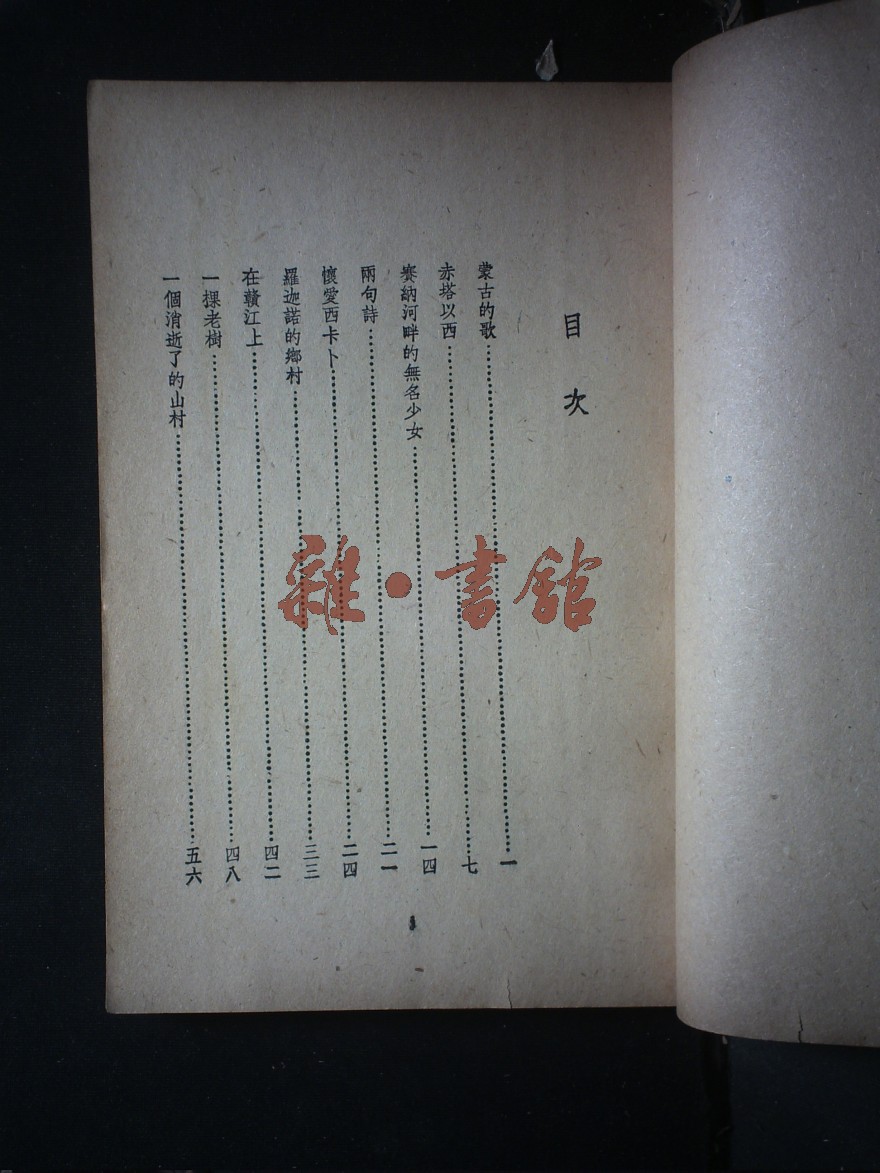 目次
蒙古的歌…………一
赤塔以西…………七
賽納河畔的無名少女…………一四
兩句詩…………二一
懷愛西卡卜…………二四
羅迦諾的鄉村…………三三
在贛江上…………四二
一棵老樹…………四八
一個消逝了的山村…………五六
雜·書館